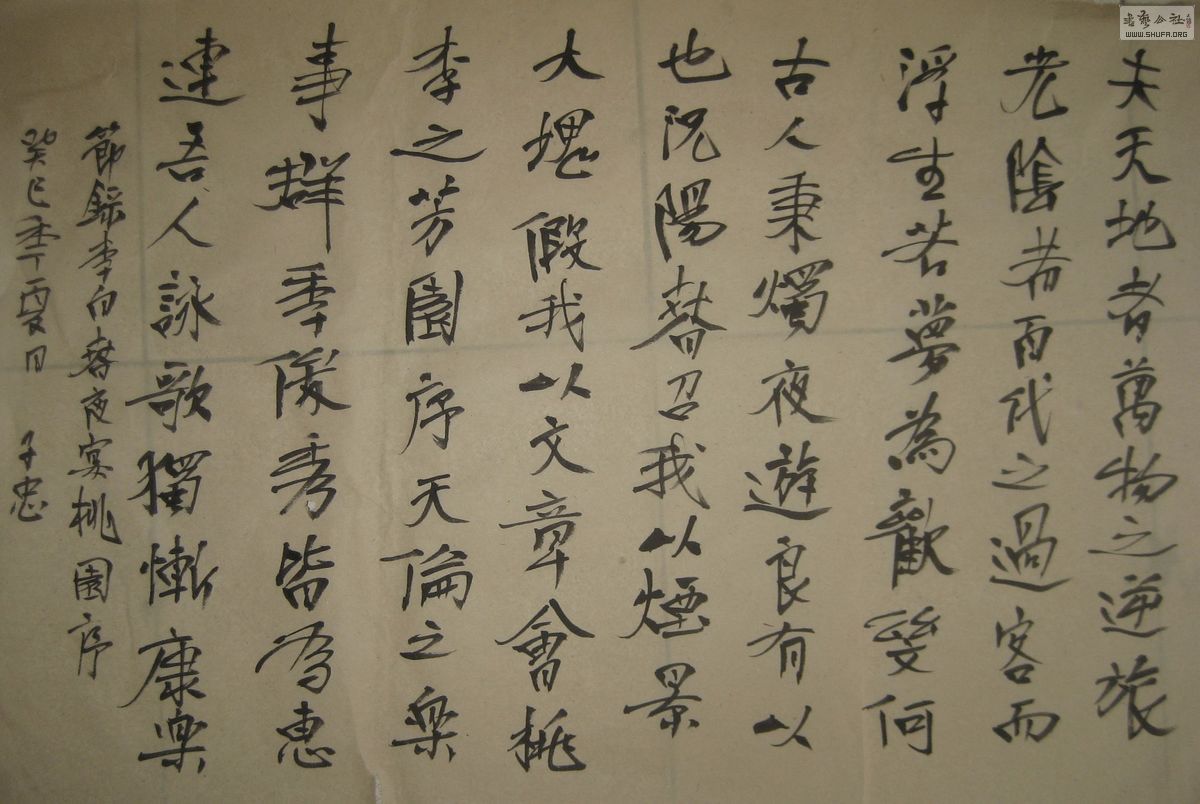 夫天地者萬物之逆旅
光陰者百代之過客而
浮生若夢為歡幾何
古人秉燭夜遊良有以
也況陽春召我以煙景
大塊假我以文章會桃
李之芳園序天倫之樂
事群季俊秀皆為惠
連吾人詠歌獨慚康樂
節錄李白春夜宴桃園序
癸巳季夏日 子忠
書藝公社
WWW.SHUFA.ORG